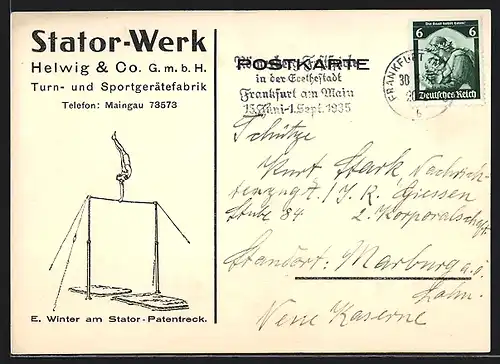 Stator-Werk
Helwig & Co. G. m. b. H.
Turn- und Sportgerätefabrik
Telefon: Maingau 73573
E. Winter am Stator-Patentreck.
POSTKARTE
in der Goethestadt
Frankfurt am Main
15. Juni-1. Sept. 1935
FRANKF
30
b
6 6
Deutsches Reich
Schütze
Kurt Stark, Nachrich-
tenzug I./J. R. Giessen
Stube 84 2. Korporalschaft
Standort: Marburg a. d.
Lahn.
Neue Kaserne